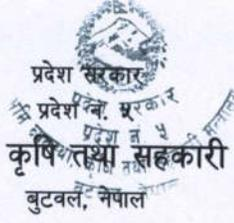 प्रदेश सरकार
प्रदेश नं. ५
कृषि तथा सहकारी
बुटवल, नेपाल